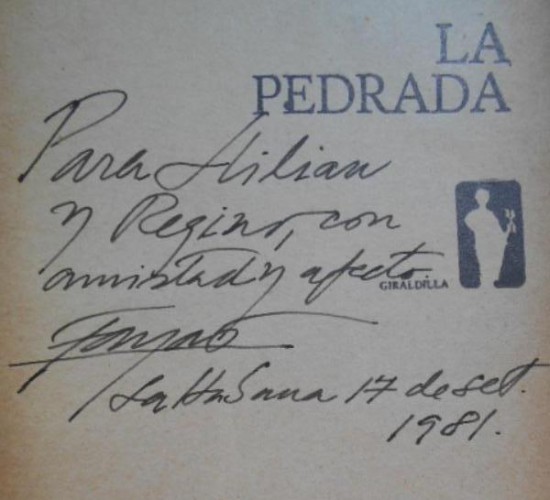 LA
PEDRADA
Para Lilian
y Regino, con
amistad y afecto.
GIRALDILLA
La Habana 17 de set.
1981.